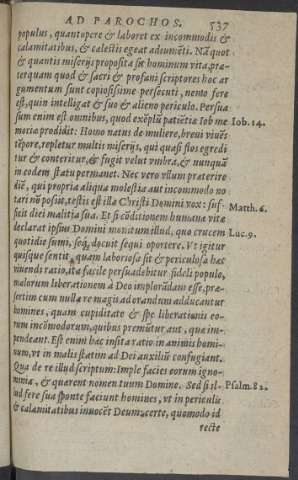 AD PAROCHOS. 537
populus, quantopere & laboret ex incommodis &
calamitatibus, & cælestis egeat adiumēti. Nā quot
& quantis miserijs proposita sit hominum vita, præ-
terquam quod & sacri & profani scriptores hoc ar
gumentum sunt copiosissime persecuti, nemo fere
est, quin intelligat & suo & alieno periculo. Persua
sum enim est omnibus, quod exēplū patiētiæ Iob me Iob. 14.
moriæ prodidit: Homo natus de muliere, breui viuēs
tēpore, repletur multis miserijs, qui quasi flos egredi
tur & conteritur, & fugit velut vmbra, & nunquā
in eodem statu permanet. Nec vero vllum præterire
diē, qui propria aliqua molestia aut incommodo no
tari nō possit, testis est illa Christi Domini vox: suf- Matth. 6.
ficit diei malitia sua. Et si cōditionem humanæ vitæ
declarat ipsius Domini monitum illud, quo crucem Luc. 9.
quotidie sumi, seq, docuit sequi oportere. Vt igitur
quisque sentit, quam laboriosa sit & periculosa hæc
viuendi ratio, ita facile persuadebitur fideli populo,
malorum liberationem a Deo implorādam esse, præ-
sertim cum nulla re magis ad orandum adducantur
homines, quam cupiditate & spe liberationis eo-
rum incōmodorum, quibus premūtur aut, quæ im-
pendeant. Est enim hæc insita ratio in animis homi-
num, vt in malis statim ad Dei auxiliū confugiant.
Qua de re illud scriptum: Imple facies eorum igno-
minia, & quærent nomen tuum Domine. Sed si il- Psalm. 82.
lud fere sua sponte faciunt homines, vt in periculis
& calamitatibus inuocēt Deum, certe, quomodo id
recte